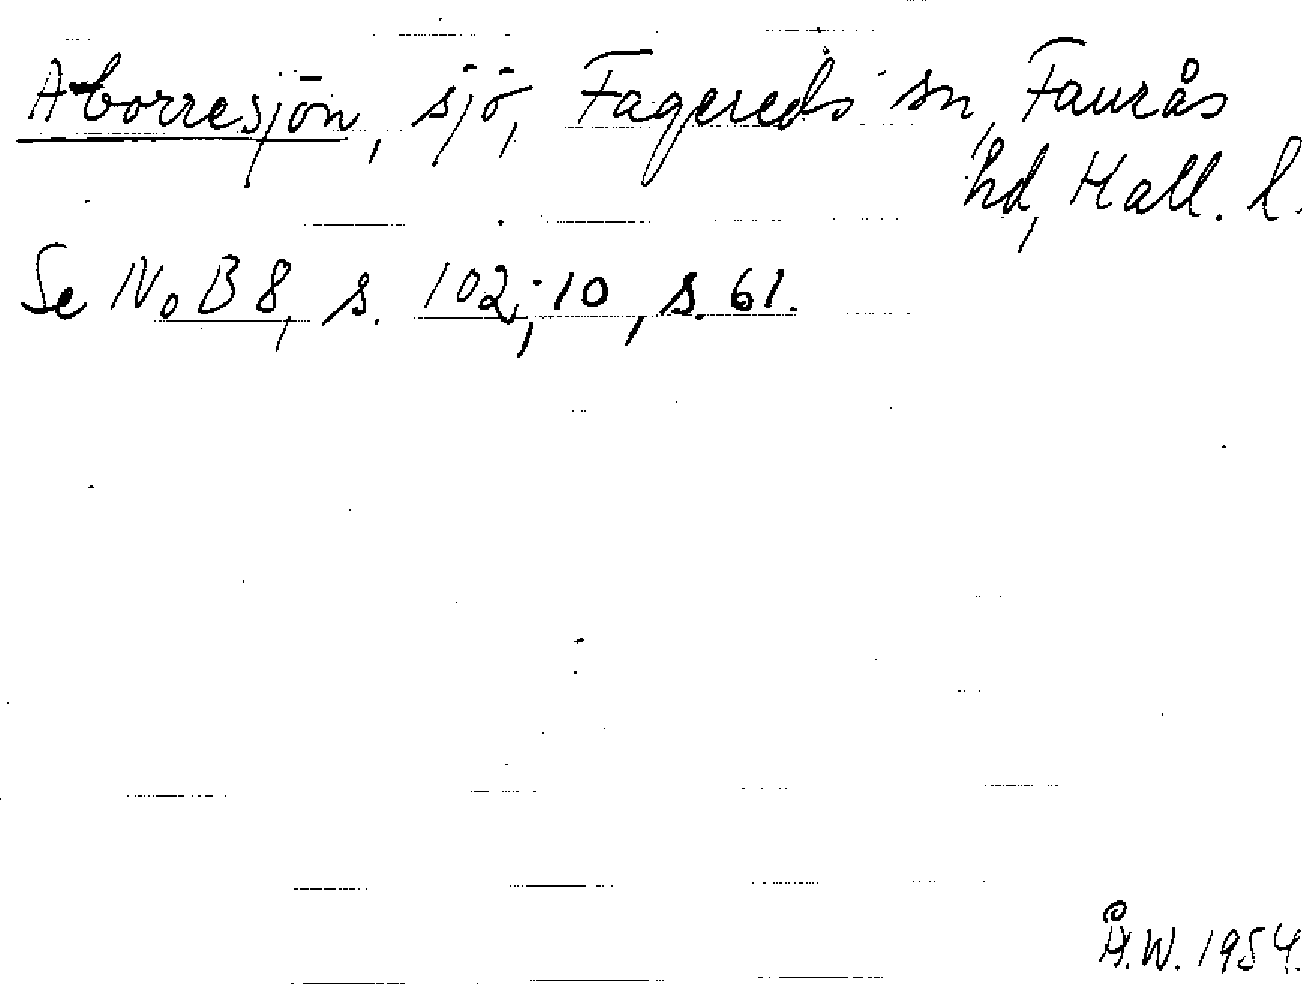 Aborresjön, sjö, Fagereds sn, Faurås
hd, Hall. l.
Se NoB 8, s. 102; 10, s. 61.
Å.W. 1954.